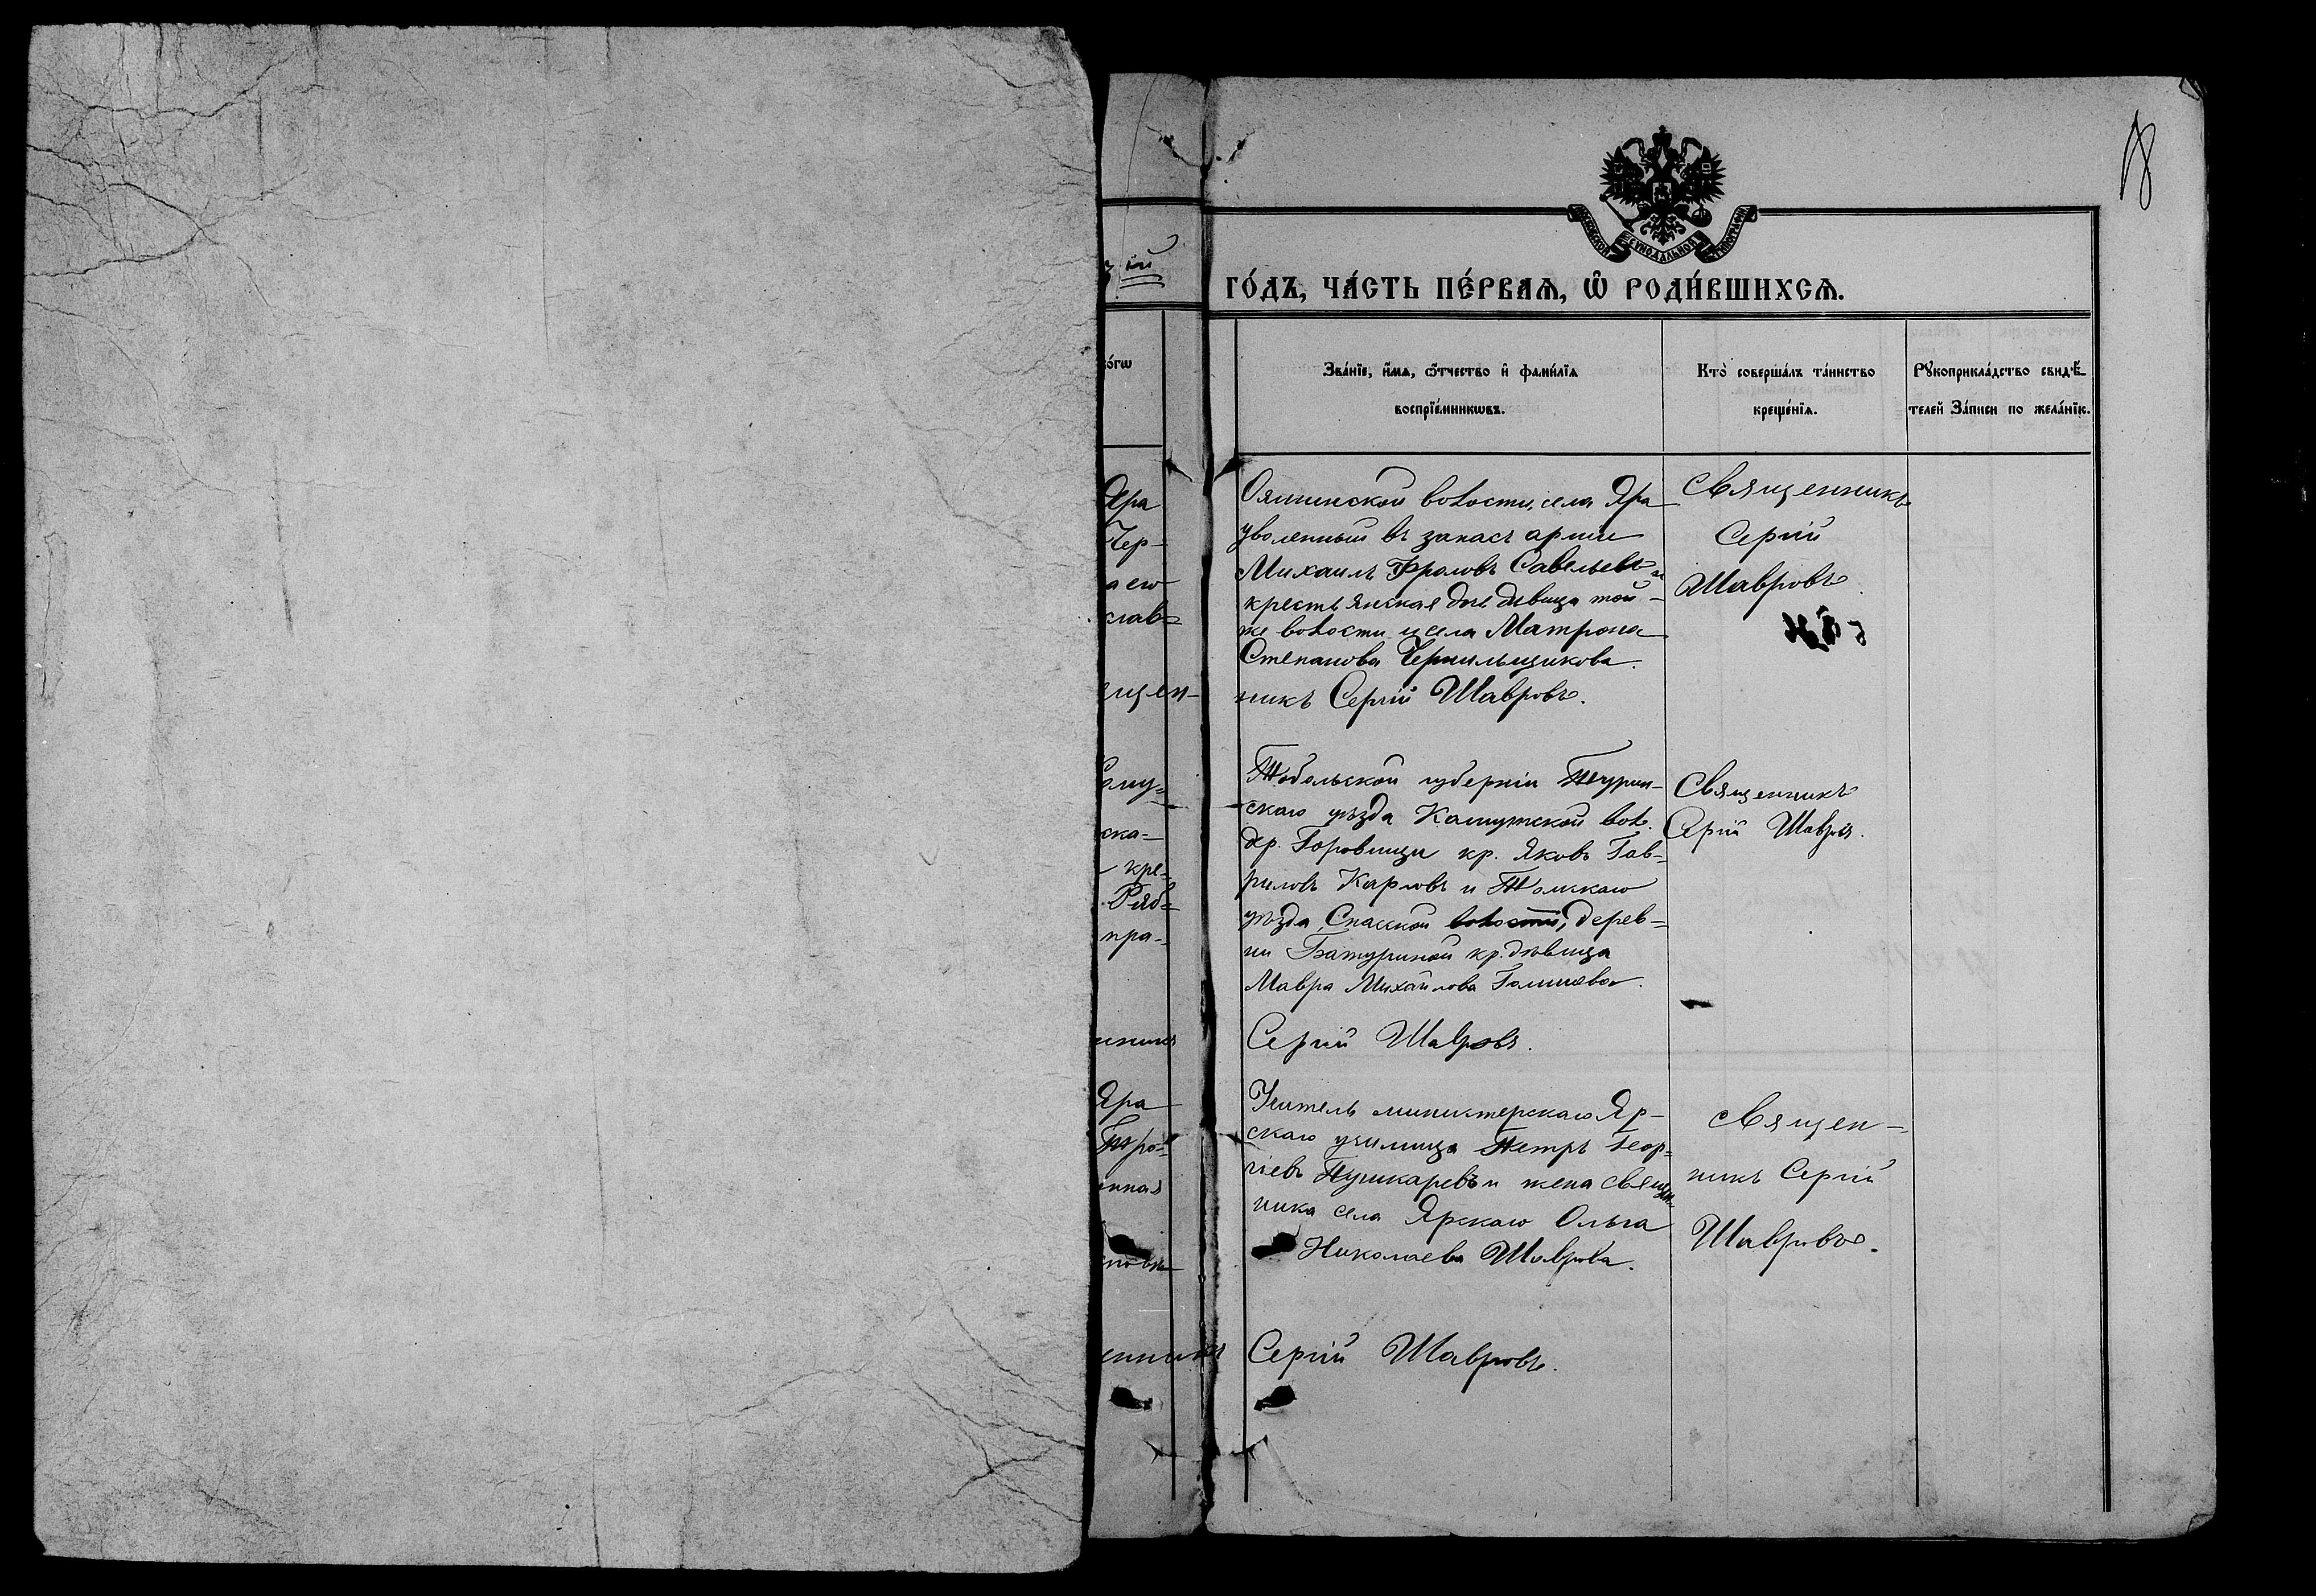 МОСКОВСКОЙ СѴНОДАЛЬНОЙ ТИПОГРАФІИ
ГО́ДЪ, ЧА́СТЬ ПЕ́РВАѦ, Ѡ҆ РОДИ́ВШИХСѦ.
Зва́нїе, и҆́мѧ, ѻ҆́тчество и҆ фами́лїѧ
воспрїе́мникѡвъ.
Кто̀ соверша́лъ та́инство
креще́нїѧ.
Рꙋкоприкла́дство свидѣ́-
телей За́писи по жела́нїю.
Ояшинской волости, села Яра
уволенный въ запасъ арміи
Михаилъ Фроловъ Савельевъ и
крестьянская дочь дѣвица той-
же волости и села Матрона
Степанова Чернильщикова.
никъ Сергій Шавровъ.
Священникъ
Сергій
Шавровъ.
Тобольской губерніи Турин-
скаго уѣзда Кашукской вол.
дер. Боровища кр. Яковъ Гав-
риловъ Карловъ и Томскаго
уѣзда Спасской волости, дерев-
ни Батуриной кр. дѣвица
Мавра Михайлова
Сергій Шавровъ.
Священникъ
Сергій Шавровъ.
Учитель министерскаго Яр-
скаго училища Петръ Геор-
гіевъ Пушкаревъ и жена священ-
ника села Ярскаго Ольга
Николаева Шаврова.
Сергій Шавровъ.
Священ-
никъ Сергій
Шавровъ.
Яра
Чер-
а его
слав-
щен-
ска-
кре-
Ряб-
пра-
Яра
нная